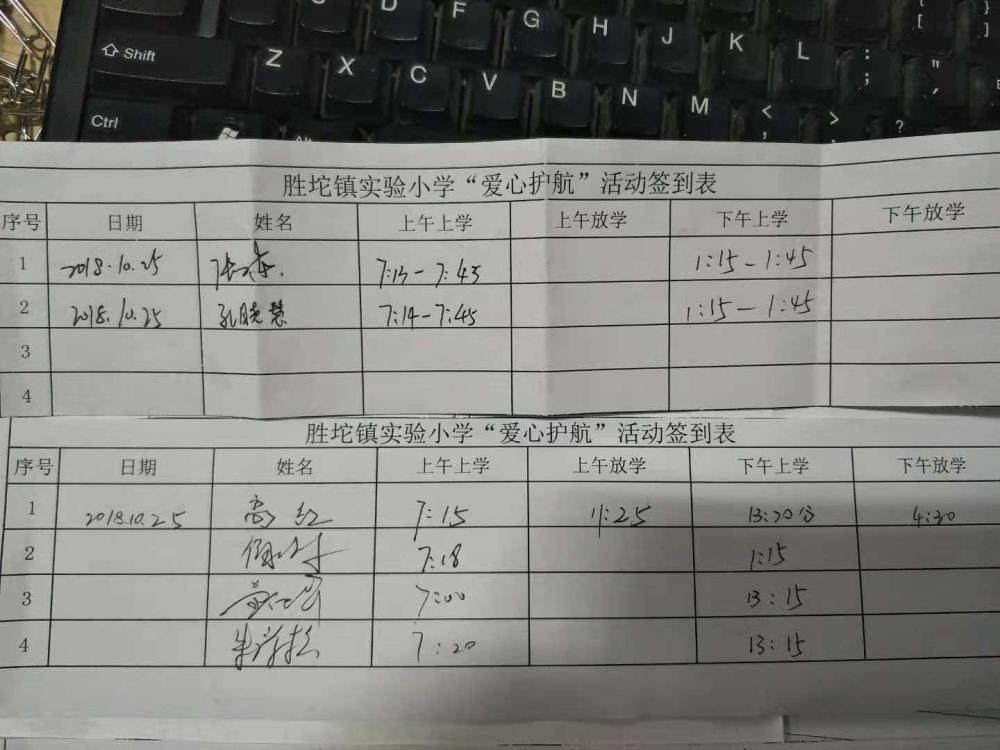 D F G H J K L : ; " '
{ [ } ]
Shift Z X C V B N M < , > ?
Ctrl Alt
胜坨镇实验小学“爱心护航”活动签到表
序号 日期 姓名 上午上学 上午放学 下午上学 下午放学
1 2018.10.25 7:13-7:43 1:15-1:45
2 2018.10.25 孔晓慧 7:14-7:45 1:15-1:45
3
4
胜坨镇实验小学“爱心护航”活动签到表
序号 日期 姓名 上午上学 上午放学 下午上学 下午放学
1 2018.10.25 高红 7:15 11:25 13:20分 4:30
2 7:18 1:15
3 7:00 13:15
4 7:20 13:15